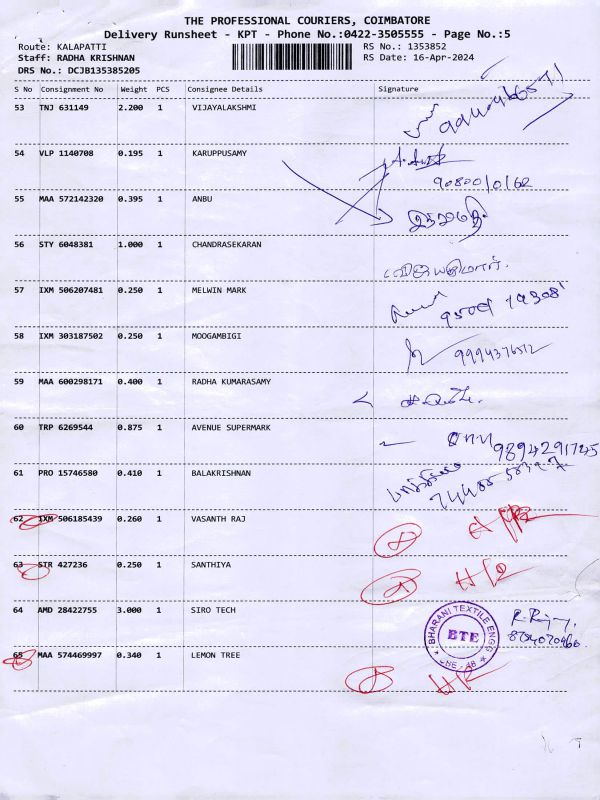 THE PROFESSIONAL COURIERS, COIMBATORE
Delivery Runsheet - KPT - Phone No.:0422-3505555 - Page No.:5
Route: KALAPATTI RS No.: 1353852
Staff: RADHA KRISHNAN RS Date: 16-Apr-2024
DRS No.: DCJB135385205
S No Consignment No Weight PCS Consignee Details Signature
53 TNJ 631149 2.200 1 VIJAYALAKSHMI
54 VLP 1140708 0.195 1 KARUPPUSAMY
55 MAA 572142320 0.395 1 ANBU
56 STY 6048381 1.000 1 CHANDRASEKARAN
57 IXM 506207481 0.250 1 MELWIN MARK
58 IXM 303187502 0.250 1 MOOGAMBIGI
9994376512
59 MAA 600298171 0.400 1 RADHA KUMARASAMY
60 TRP 6269544 0.875 1 AVENUE SUPERMARK
9894291745
61 PRO 15746580 0.410 1 BALAKRISHNAN
62 IXM 506185439 0.260 1 VASANTH RAJ
63 STR 427236 0.250 1 SANTHIYA
64 AMD 28422755 3.000 1 SIRO TECH
BHARANI TEXTILE ENGG
BTE
65 MAA 574469997 0.340 1 LEMON TREE